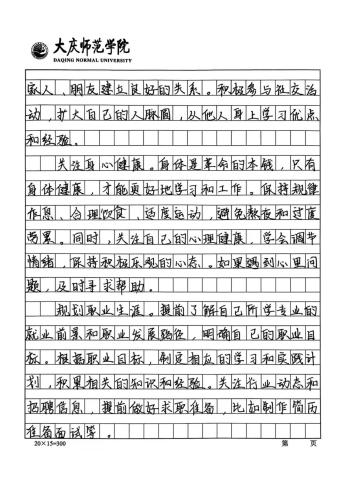 大庆师范学院
DAQING NORMAL UNIVERSITY
家人、朋友建立良好的关系。积极参与社交活
动，扩大自己的人脉圈，从他人身上学习优点
和经验。
关注身心健康。身体是革命的本钱，只有
身体健康，才能更好地学习和工作。保持规律
作息、合理饮食、适度运动，避免熬夜和过度
劳累。同时，关注自己的心理健康，学会调节
情绪，保持积极乐观的心态。如果遇到心里问
题，及时寻求帮助。
规划职业生涯。提前了解自己所学专业的
就业前景和职业发展路径，明确自己的职业目
标。根据职业目标，制定相应的学习和实践计
划，积累相关的知识和经验。关注行业动态和
招聘信息，提前做好求职准备，比如制作简历
准备面试等。
20×15=300 第 页